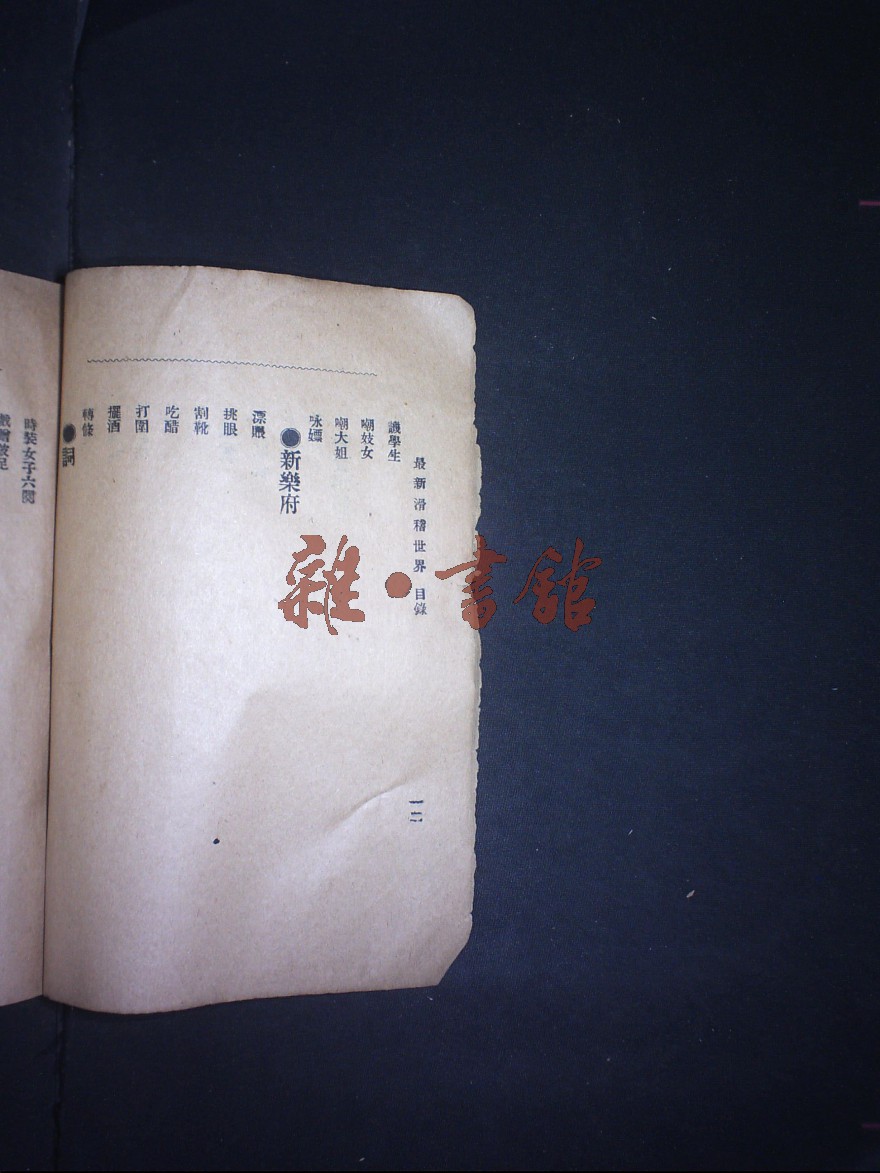 最新滑稽世界 目錄
一二
譏學生
嘲妓女
嘲大姐
咏嫖
●新樂府
漂賬
挑眼
割靴
吃醋
打圍
擺酒
轉條
●詞
時裝女子六闋
雜•書館